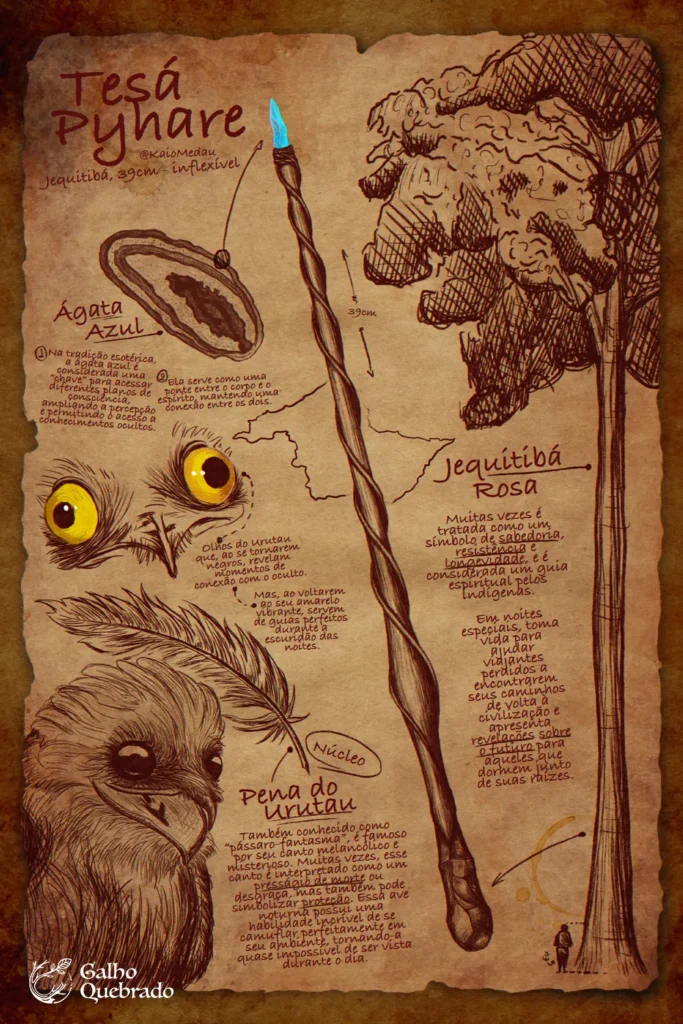 Tesá
Pyhare
@KaioMedau
Jequitibá, 39cm - inflexível
39cm
Ágata
Azul
1 Na tradição esotérica,
a ágata azul é
considerada uma
"chave" para acessar
diferentes planos de
consciência,
ampliando a percepção
e permitindo o acesso a
conhecimentos ocultos.
2 Ela serve como uma
ponte entre o corpo e o
espírito, mantendo uma
conexão entre os dois.
Jequitibá
Rosa
Muitas vezes é
tratada como um
símbolo de sabedoria,
resistência e
longevidade, e é
considerada um guia
espiritual pelos
indígenas.
Em noites
especiais, toma
vida para
ajudar
viajantes
perdidos a
encontrarem
seus caminhos
de volta à
civilização e
apresenta
revelações sobre
o futuro para
aqueles que
dormem junto
de suas raízes.
Olhos do urutau
que, ao se tornarem
negros, revelam
momentos de
conexão com o oculto.
Mas, ao voltarem
ao seu amarelo
vibrante, servem
de guias perfeitos
durante a
escuridão das
noites.
Núcleo
Pena do
Urutau
Também conhecido como
"pássaro-fantasma", é famoso
por seu canto melancólico e
misterioso. Muitas vezes, esse
canto é interpretado como um
presságio de morte ou
desgraça, mas também pode
simbolizar proteção. Essa ave
noturna possui uma
habilidade incrível de se
camuflar perfeitamente em
seu ambiente, tornando-a
quase impossível de ser vista
durante o dia.
Galho
Quebrado